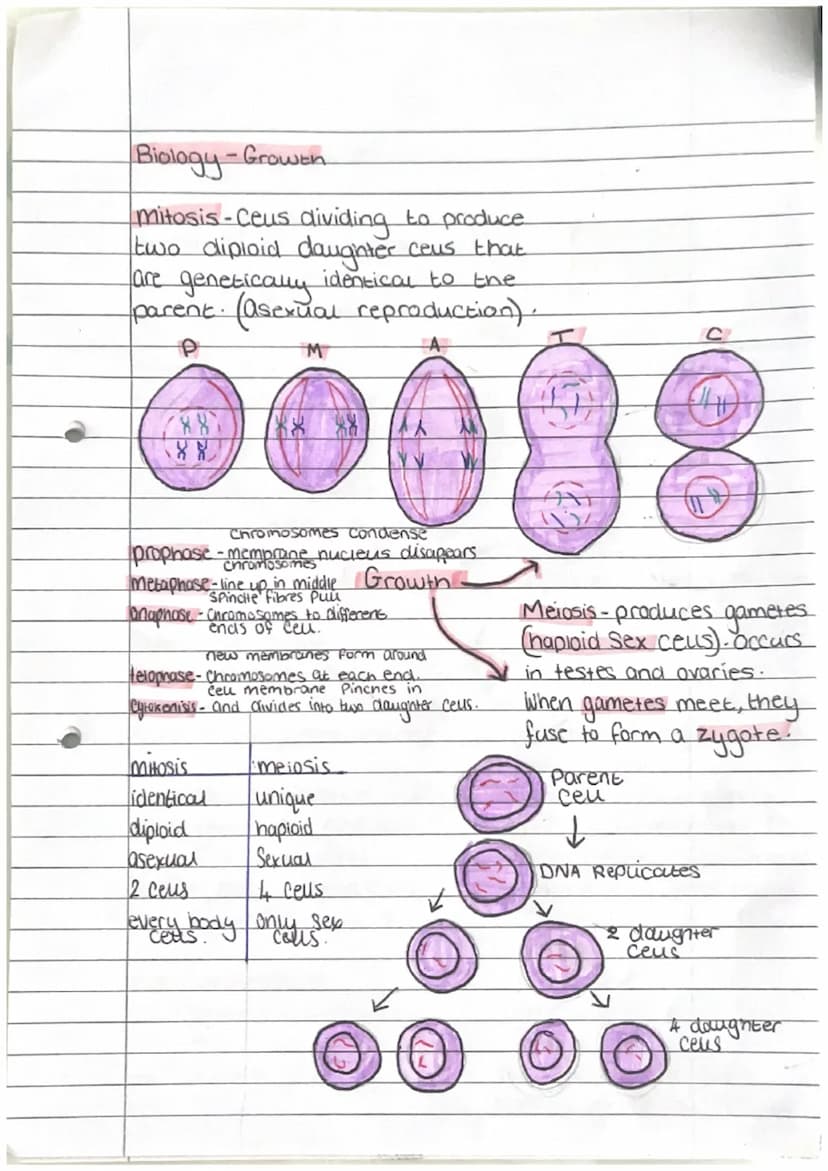 Biology - Growth
mitosis - Cells dividing to produce
two diploid daughter cells that
are genetically identical to the
parent. (asexual reproduction).
P M A T C
chromosomes condense
prophase - membrane nucleus disapears
chromosomes
metaphase - line up in middle
spindle fibres pull
anaphase - chromosomes to different
ends of cell.
new membranes form around
telophase - chromosomes at each end.
cell membrane pinches in
cytokenisis - and divides into two daughter cells.
Growth
Meiosis - produces gametes
(haploid sex cells). occurs
in testes and ovaries.
When gametes meet, they
fuse to form a zygote.
mitosis meiosis
identical unique
diploid haploid
asexual sexual
2 cells 4 cells
every body only sex
cells. cells.
Parent
cell
DNA Replicates
2 daughter
cells
4 daughter
cells